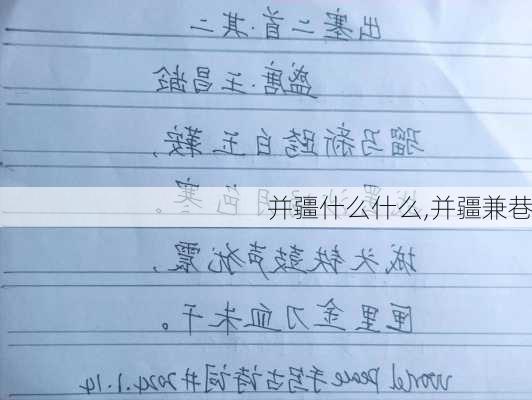 出塞二首·其二
盛唐·王昌龄
骝马新跨白玉鞍,
月色寒。
并疆什么什么,并疆兼巷
城头铁鼓声犹震,
匣里金刀血未干。
world peace 手写古诗词#2024.1.14